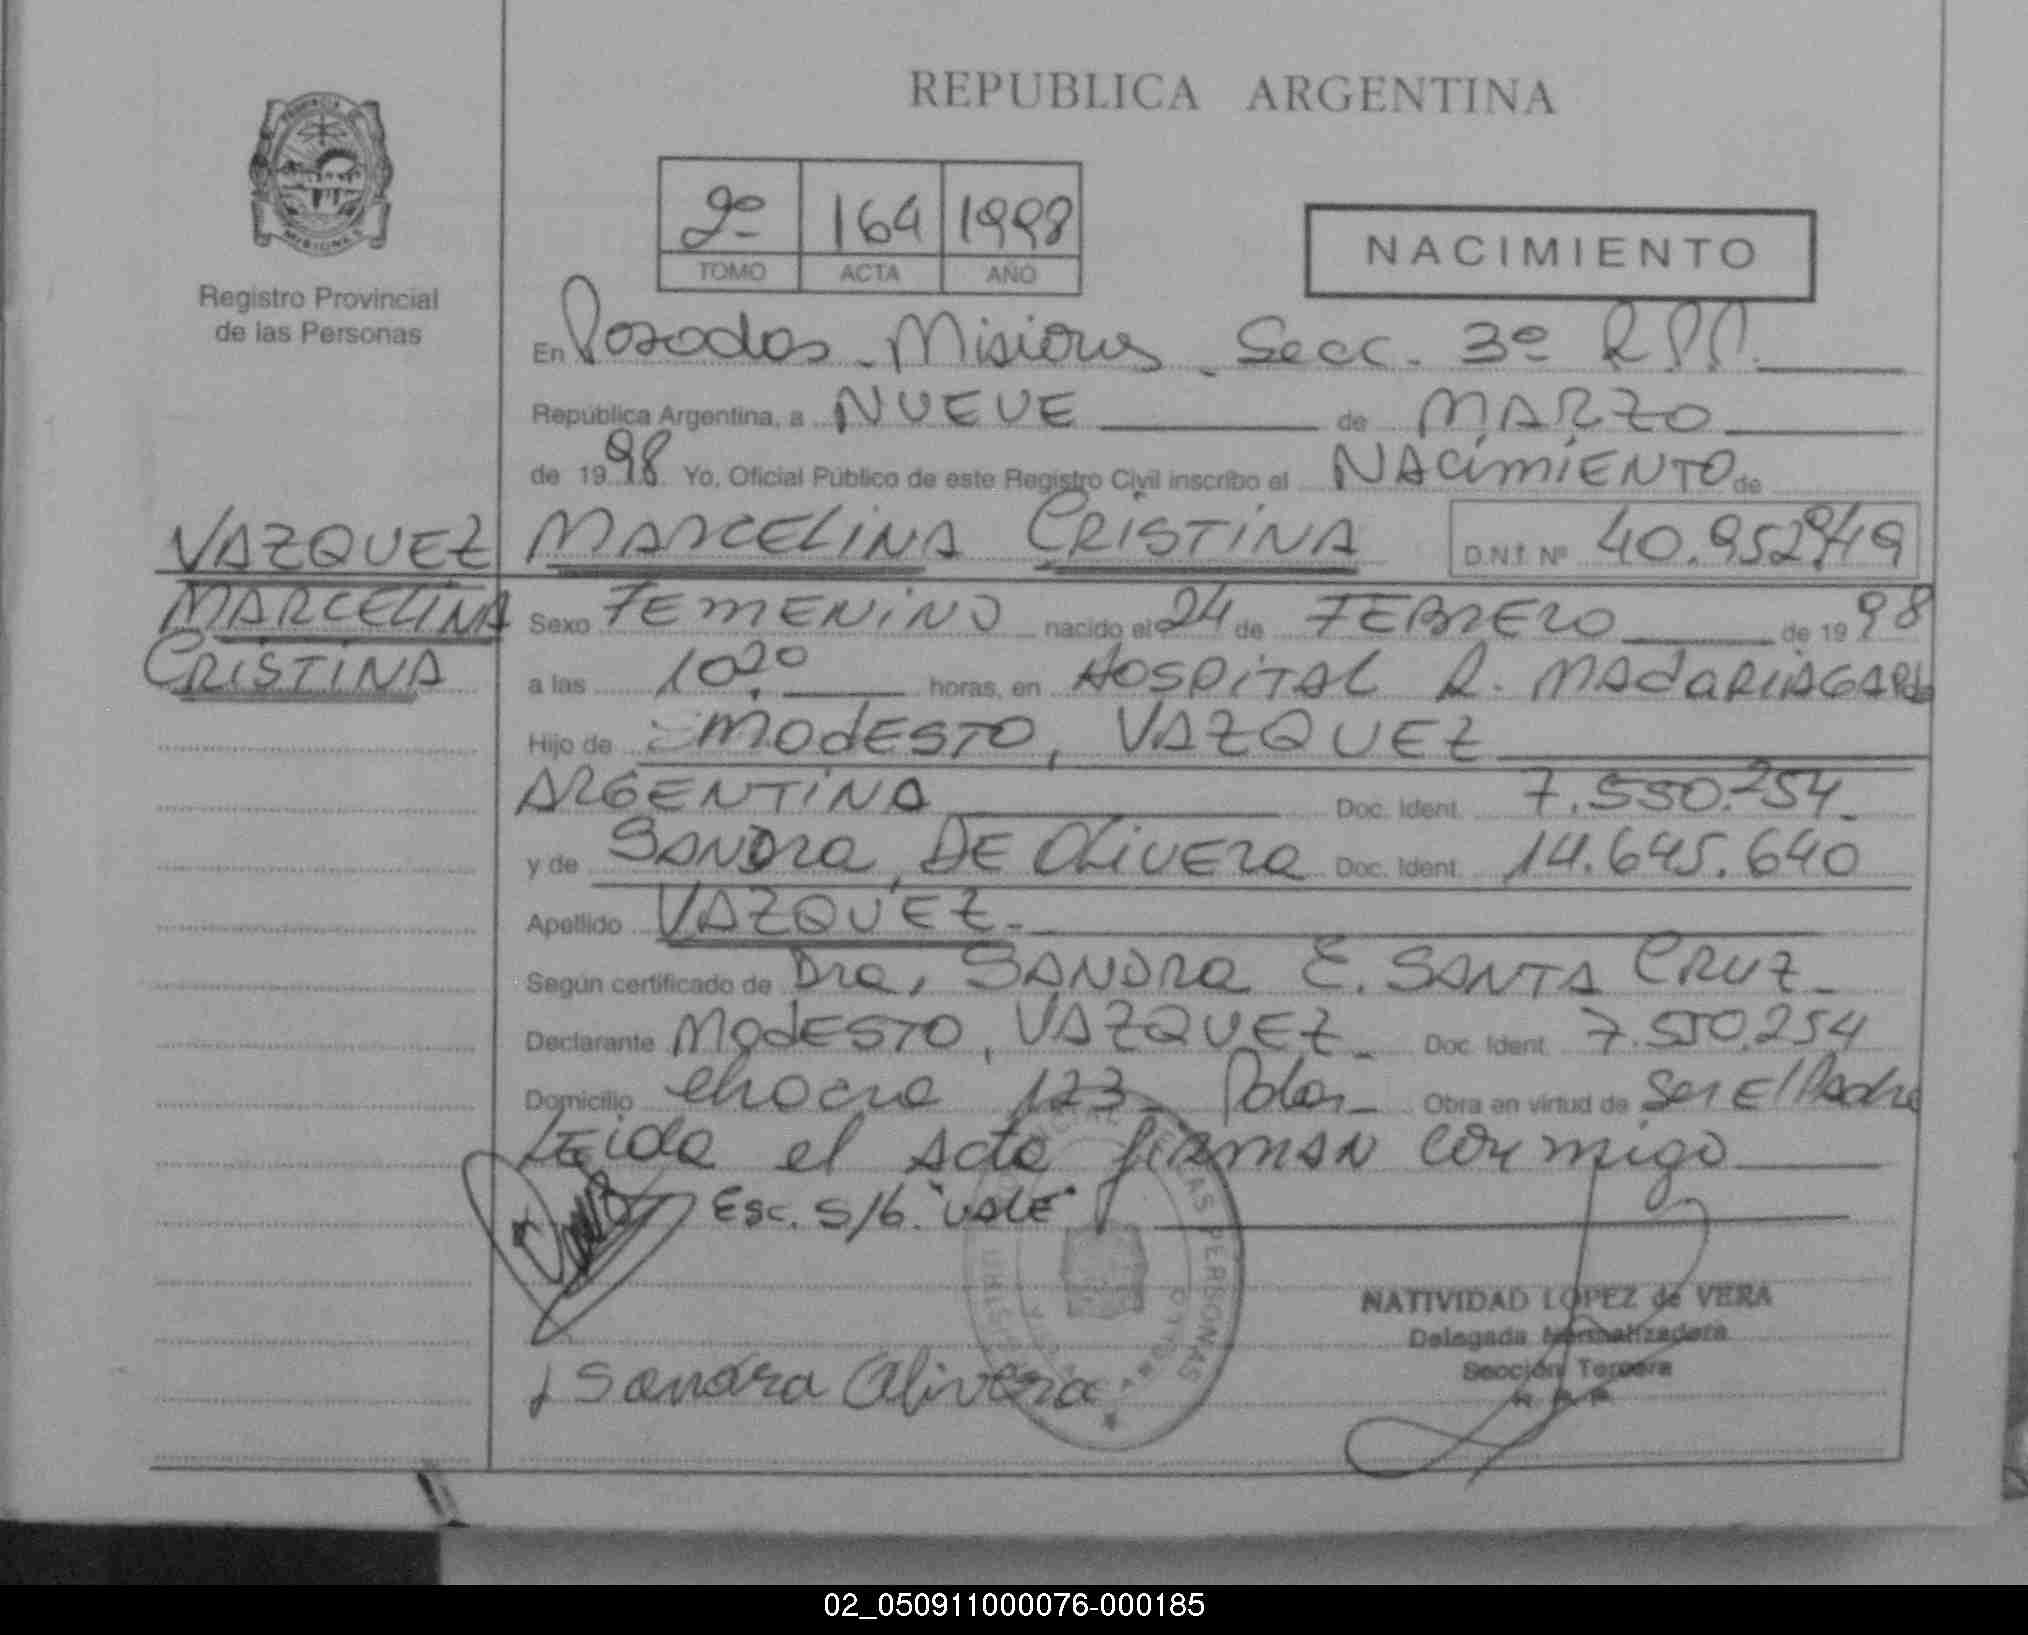 REPUBLICA ARGENTINA
PROVINCIA
MISIONES
Registro Provincial
de las Personas
2º 164 1998
TOMO ACTA AÑO
NACIMIENTO
En Posadas - Misiones - Secc. 3º R.P.P.
República Argentina, a NUEVE de MARZO
de 1998 Yo, Oficial Público de este Registro Civil inscribo el NACIMIENTO de
VAZQUEZ MARCELINA CRISTINA D.N.I. Nº 40.952.949
MARCELINA Sexo FEMENINO nacido el 24 de FEBRERO de 1998
CRISTINA a las 10,20 horas, en HOSPITAL R. MADARIAGA
Hijo de MODESTO, VAZQUEZ
ARGENTINA Doc. Ident. 7.550.254
y de SANDRA, DE OLIVERA Doc. Ident. 14.645.640
Apellido VAZQUEZ
Según certificado de Dra, SANDRA E. SANTA CRUZ
Declarante MODESTO, VAZQUEZ Doc. Ident. 7.550.254
Domicilio chacra 123 Pdas Obra en virtud de Ser El Padre
Leida el acta firman conmigo
Esc. S/b. "VALE"
NATIVIDAD LOPEZ de VERA
Delegada Normalizadora
Sección Tercera
Sandra Olivera
02_050911000076-000185